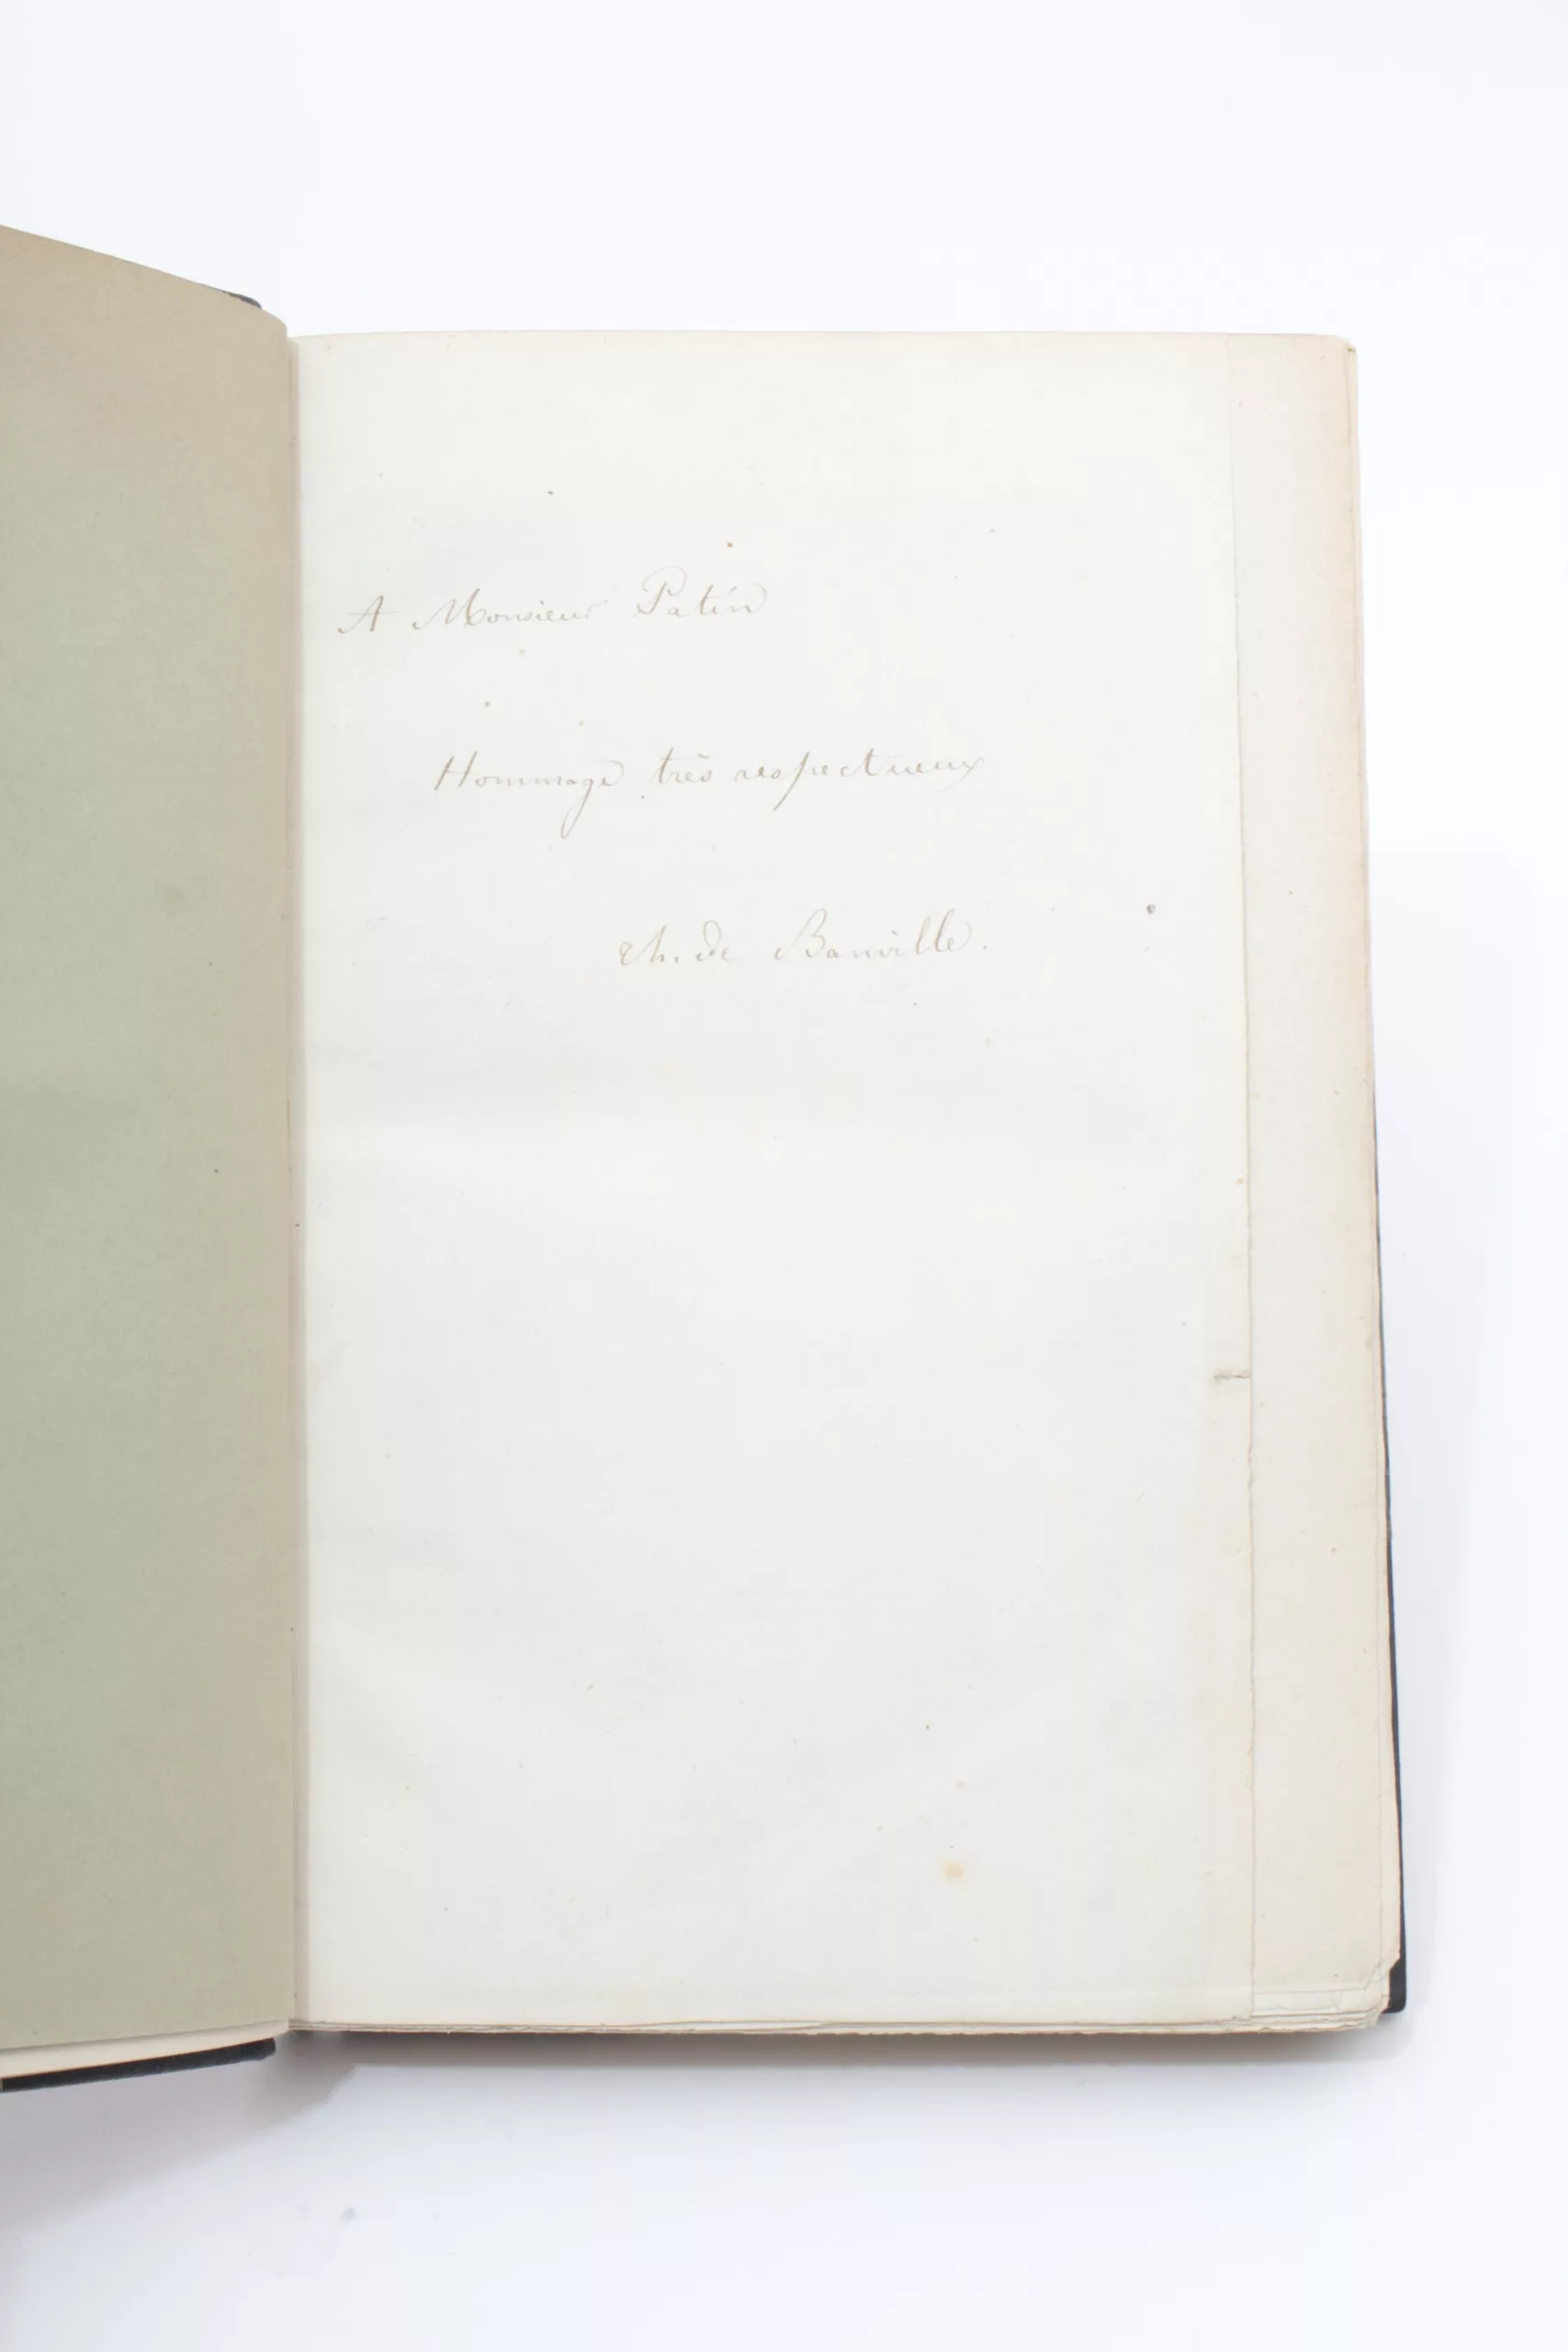 A Monsieur Patin
Hommage très respectueux
Th. de Banville.